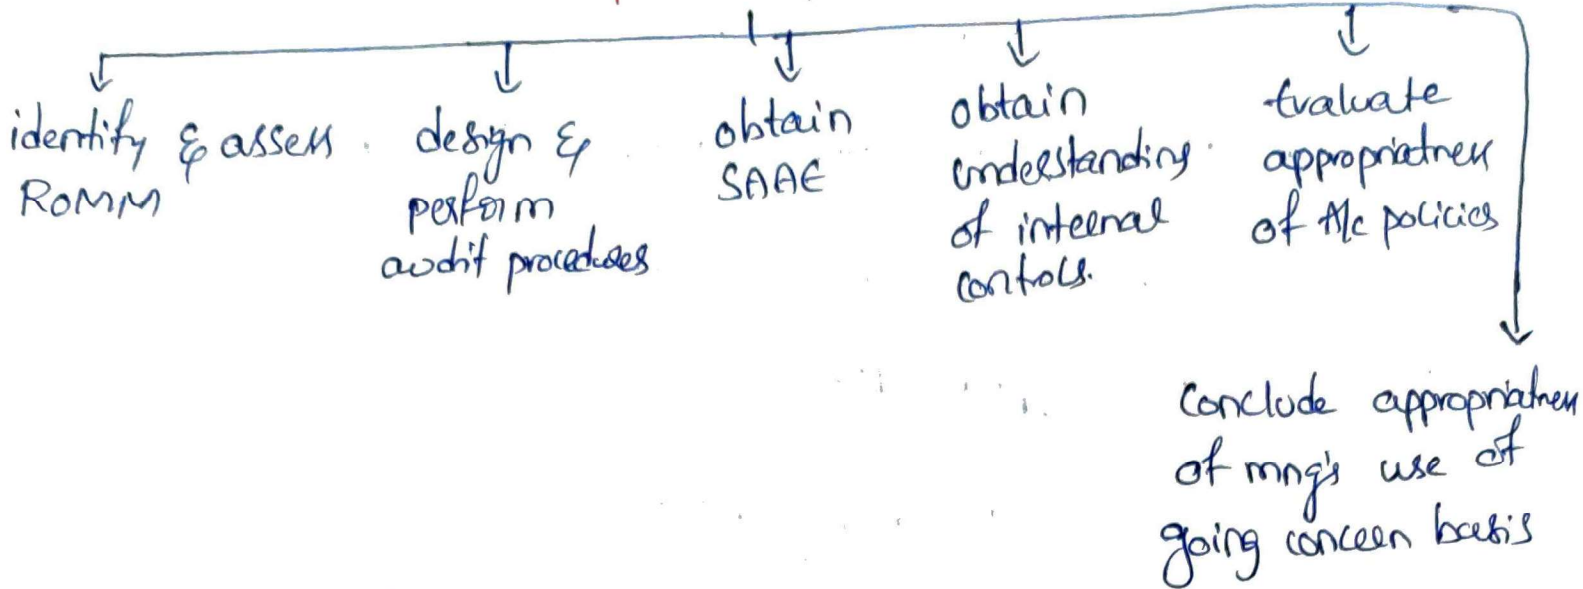 identify & assess
ROMM
design &
perform
audit procedures
obtain
SAAE
obtain
understanding
of internal
controls.
Evaluate
appropriatness
of A/c policies
Conclude appropriatness
of mng's use of
going concern basis